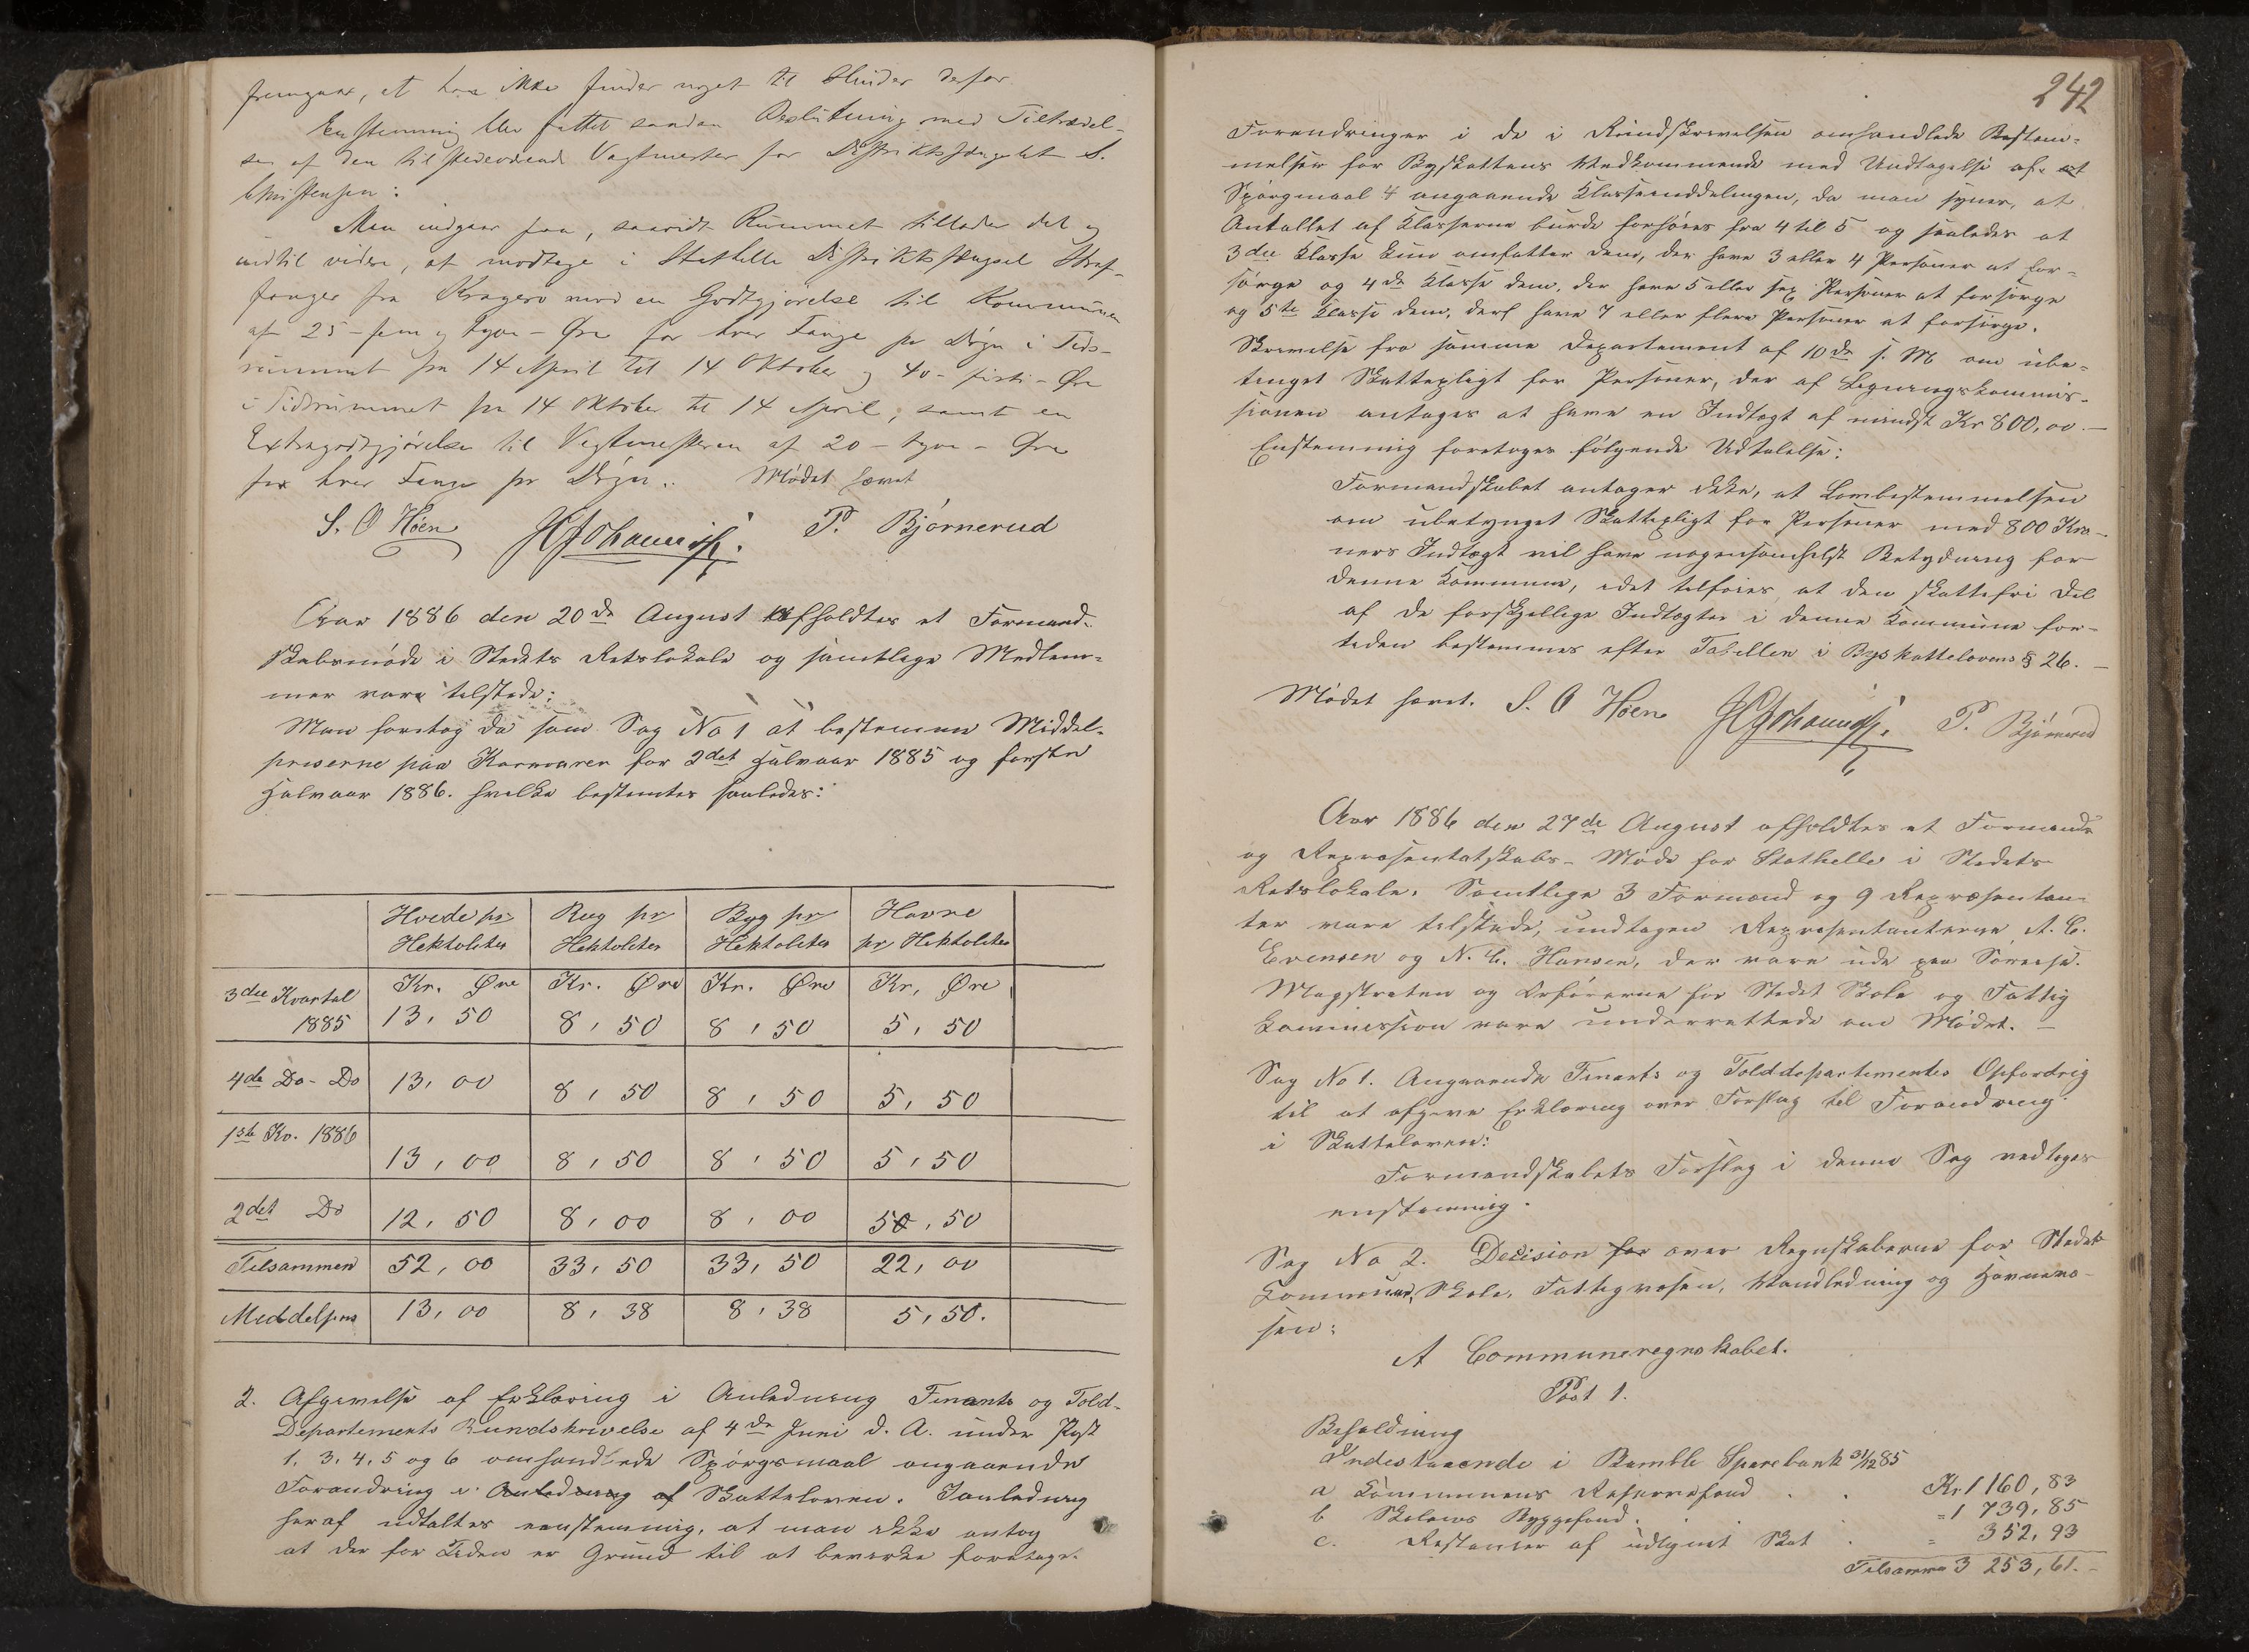 fremgaar, at han ikke finder noget til Hinder derfor
Enstemmig blev fattet saadan Beslutning med Tiltrædel-
se af den tilstedeværende Vagtmester for Distriktsfængslet S.
Christensen:
Man indgaar paa, saavidt Rummet tillader det og
indtil videre, at modtage i Stathelle Distriktsfængsel Straf-
fanger fra Kragerø mod en Godtgjörelse til Kommunen
af 25 - fem og tyve - Øre for hver Fange pr Dögn i Tids-
rummet fra 14 April til 14 Oktober og 40 - firti - Øre
i Tidsrummet fra 14 Oktober til 14 April, samt en
Extragodtgjörelse til Vagtmesteren af 20 - tyve - Øre
for hver Fange pr Dögn. Mödet hævet
S. O Höen H Johannis. P. Björnerud
Aar 1886 den 20de August afholdtes et Formand-
skabsmöde i Stedets Retslokale og samtlige Medlem-
mer vare tilstede:
Man foretog da som Sag No 1 at bestemme Middel-
priserne paa Kornvarer for 2det Halvaar 1885 og förste
Halvaar 1886. hvilke bestemtes saaledes:
Hvede pr Hektoliter Rug pr Hektoliter Byg pr Hektoliter Havre pr Hektoliter
3die Kvartal Kr. Øre Kr. Øre Kr. Øre Kr, Øre
1885 13, 50 8, 50 8, 50 5, 50
4de Do - Do 13, 00 8, 50 8, 50 5, 50
1ste Kv. 1886 13, 00 8, 50 8, 50 5, 50
2det Do 12, 50 8, 00 8, 00 50, 50
Tilsammen 52, 00 33, 50 33, 50 22, 00
Middelpris 13, 00 8, 38 8, 38 5, 50.
2. Afgivelse af Erklæring i Anledning Finants og Told-
Departements Rundskrivelse af 4de Juni d. A. under Post
1, 3, 4, 5 og 6 omhandlede Spörgsmaal angaaende
Forandring i Anledning af Skatteloven. I Anledning
heraf udtaltes eenstemmig, at man ikke antog
at der for Tiden er Grund til at bevirke foretaget
242
Forandringer i de i Rundskrivelsen omhandlede Bestem-
melser for Byskattens Vedkommende med Undtagelse af et
Spörgmaal 4 angaaende Klasseinddelingen, da man synes, at
Antallet af Klasserne burde forhöies fra 4 til 5 og saaledes at
3die Klasse kun omfatter dem, der have 3 eller 4 Personer at for-
sörge og 4de Klasse dem, der have 5 eller sex Personer at forsörge
og 5te Klasse dem, der have 7 eller flere Personer at forsörge.
Skrivelse fra samme Departement af 10de s. M om ube-
tinget Skattepligt for Personer, der af Ligningskommis-
sionen antages at have en Indtægt af mindst Kr 800,00. -
Enstemmig foretoges fölgende Udtalelse:
Formandskabet antager ikke, at Lovbestemmelsen
om ubetynget Skattepligt for Personer med 800 Kro-
ners Indtægt vil have nogensomhelst Betydning for
denne Kommune, idet tilföies, at den skattefri Del
af de forskjellige Indtægter i denne Kommune for-
tiden bestemmes efter Tabellen i Byskattelovens § 26. -
Mödet hævet. S. O Höen H Johannis. P. Björnerud
Aar 1886 den 27de August afholdtes et Formands
og Repræsentatskabs - Möde for Stathelle i Stedets
Retslokale. Samtlige 3 Formænd og 9 Repræsentan-
ter vare tilstede, undtagen Repræsentanterne A. C.
Evensen og N. C. Hansen, der vare ude paa Söreise.
Magistraten og Ordförerne for Stedet Skole og Fattig
Kommission vare underrettede om Mödet. -
Sag No 1. Angaaende Finants og Tolddepartementes Opfordrig
til at afgive Erklæring over Forslag til Forandring
i Skatteloven:
Formandskabets Forslag i denne Sag vedtoges
enstemmig.
Sag No 2. Decision for over Regnskaberne for Stedets
Kommune, Skole, Fattigvæsen, Vandledning og Havnevæ-
sen:
A Communeregnskabet.
Post 1.
Beholdning
Indestaaende i Bamble Sparebank 31/12 85
a Kommunens Reservefond . . Kr 1 160, 83
b Skolens Byggefond . . " 1 739, 85
c. Restancer af udlignet Skat . " 352, 93
Tilsammen 3 253, 61. -